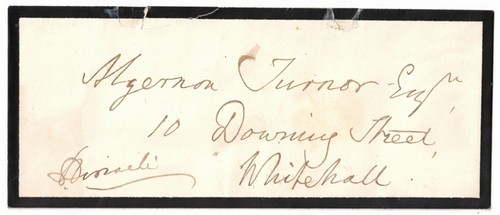 Algernon Turnor Esqr,
10 Downing Street,
Whitehall.
Disraeli